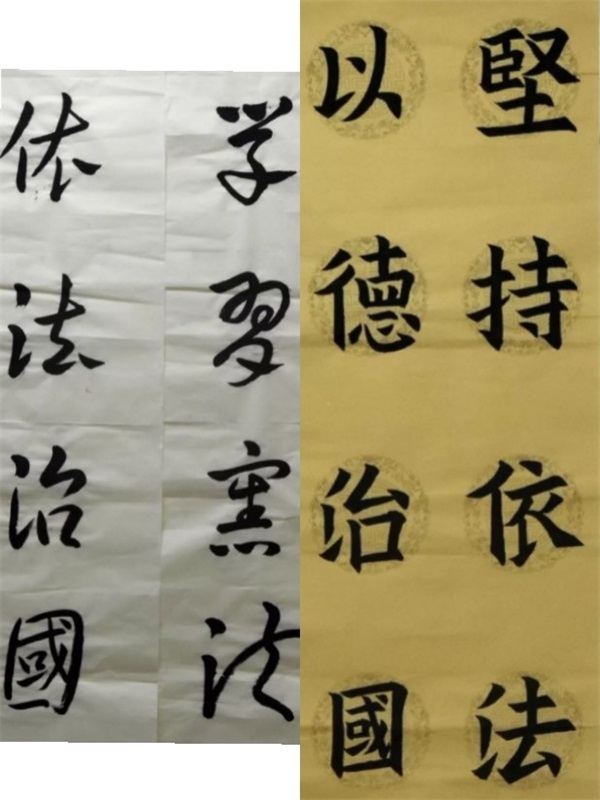 学習憲法
依法治國
堅持依法
以德治國